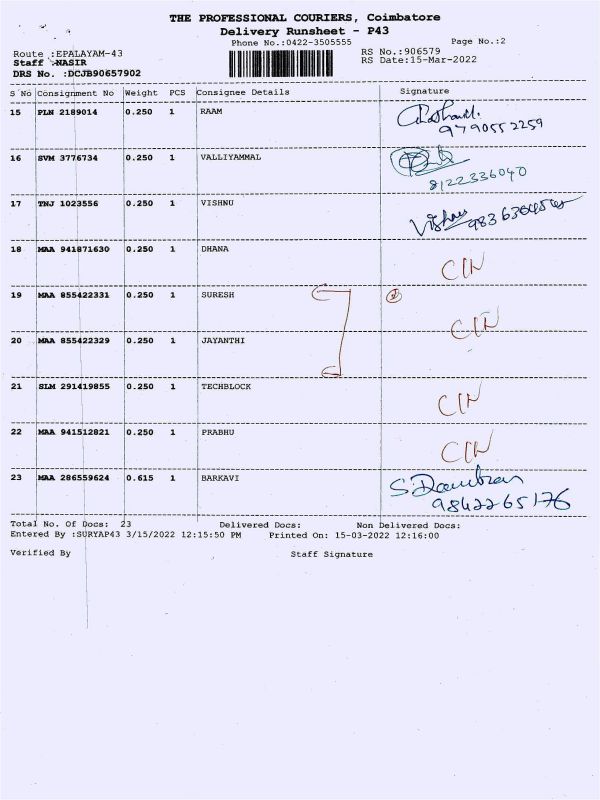 THE PROFESSIONAL COURIERS, Coimbatore
Delivery Runsheet - P43
Phone No.:0422-3505555
Page No.:2
Route :EPALAYAM-43
Staff :NASIR
DRS No. :DCJB90657902
RS No.:906579
RS Date:15-Mar-2022
S No Consignment No Weight PCS Consignee Details Signature
15 PLN 2189014 0.250 1 RAAM
9790552259
16 SVM 3776734 0.250 1 VALLIYAMMAL
8122336040
17 TNJ 1023556 0.250 1 VISHNU
18 MAA 941871630 0.250 1 DHANA CIN
19 MAA 855422331 0.250 1 SURESH
CIN
20 MAA 855422329 0.250 1 JAYANTHI
21 SLM 291419855 0.250 1 TECHBLOCK CIN
22 MAA 941512821 0.250 1 PRABHU CIN
23 MAA 286559624 0.615 1 BARKAVI
9842265176
Total No. Of Docs: 23 Delivered Docs: Non Delivered Docs:
Entered By :SURYAP43 3/15/2022 12:15:50 PM Printed On: 15-03-2022 12:16:00
Verified By Staff Signature